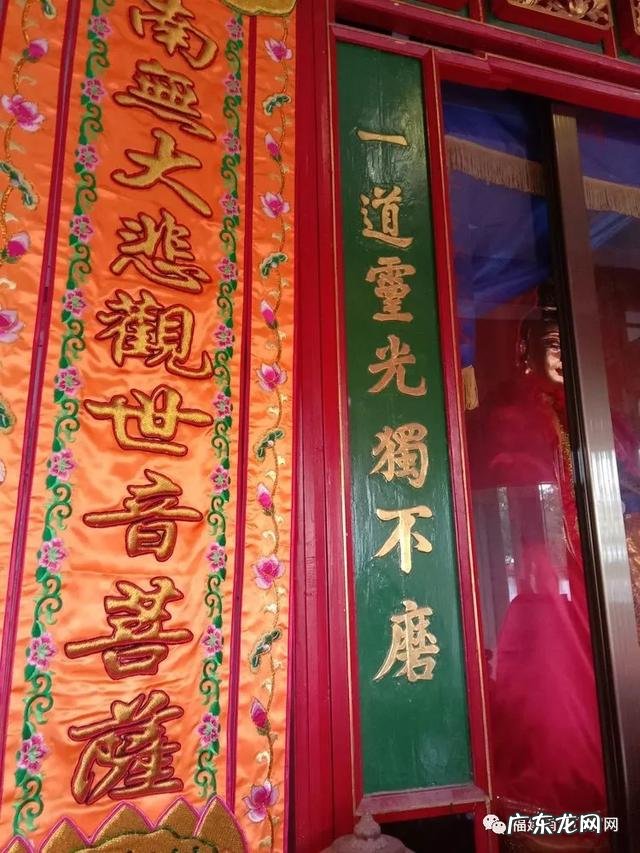 南無大悲觀世音菩薩
一道靈光獨不磨
广东龙网